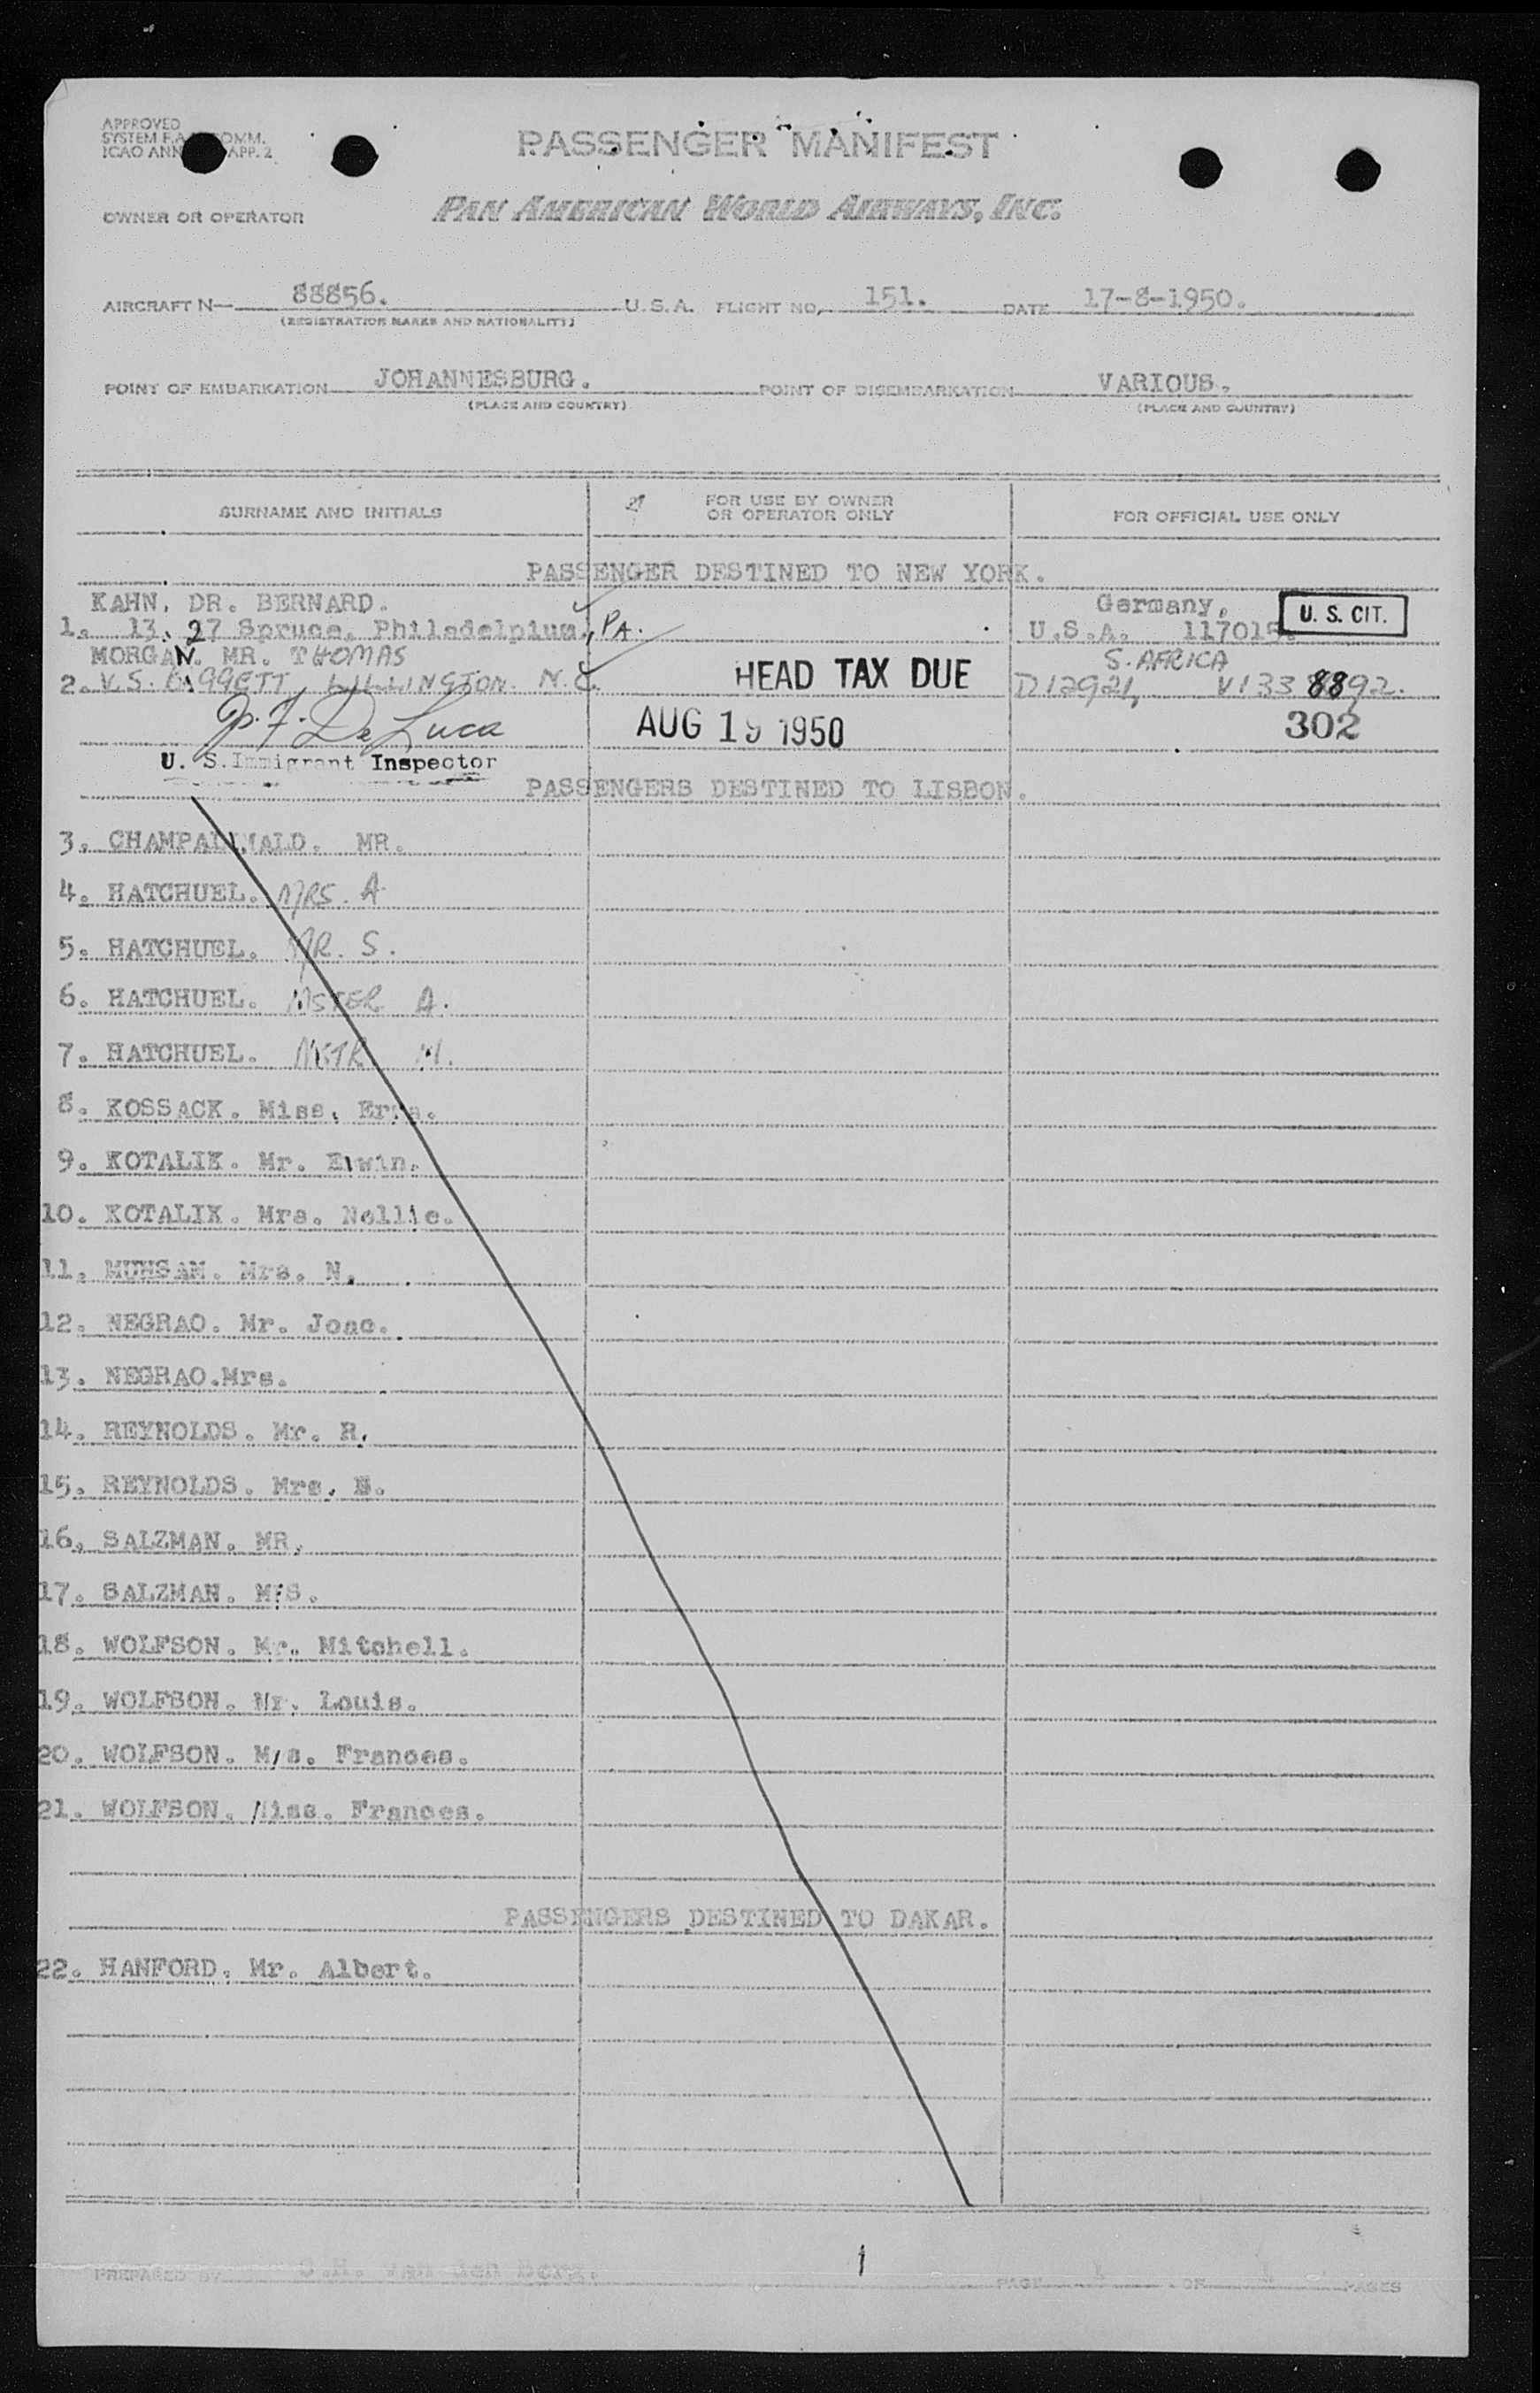 APPROVED
SYSTEM F.A. COMM.
ICAO ANN APP. 2
PASSENGER MANIFEST
OWNER OR OPERATOR PAN AMERICAN WORLD AIRWAYS, INC.
AIRCRAFT N— 88856. U.S.A. FLIGHT NO. 151. DATE 17-8-1950.
(REGISTRATION MARKS AND NATIONALITY)
POINT OF EMBARKATION JOHANNESBURG. POINT OF DISEMBARKATION VARIOUS.
(PLACE AND COUNTRY) (PLACE AND COUNTRY)
SURNAME AND INITIALS FOR USE BY OWNER OR OPERATOR ONLY FOR OFFICIAL USE ONLY
PASSENGER DESTINED TO NEW YORK.
KAHN. DR. BERNARD. Germany.
1. 13. 27 Spruce. PA. U.S.A. 117015. U. S. CIT.
MORGAN. MR. THOMAS S. AFRICA
2. V.S. LILLINGTON. N.C. HEAD TAX DUE D12921, V1338892.
P. F. De Luca AUG 19 1950 302
U. S. Immigrant Inspector
PASSENGERS DESTINED TO LISBON.
3. MR.
4. HATCHUEL. MRS. A
5. HATCHUEL. MR. S.
6. HATCHUEL. MSTER A.
7. HATCHUEL. MSTR M.
8. KOSSACK. Miss. Erna.
9. KOTALIK. Mr. Erwin.
10. KOTALIK. Mrs. Nellie.
11. MUHSAM. Mrs. N.
12. NEGRAO. Mr. Joao.
13. NEGRAO.Mrs.
14. REYNOLDS. Mr. R.
15. REYNOLDS. Mrs. E.
16. SALZMAN. MR.
17. SALZMAN. MRS.
18. WOLFSON. Mr. Mitchell.
19. WOLFSON. Mr. Louis.
20. WOLFSON. Mrs. Frances.
21. WOLFSON. Miss. Frances.
PASSENGERS DESTINED TO DAKAR.
22. HANFORD. Mr. Albert.
PREPARED BY 1 PAGE OF PAGES